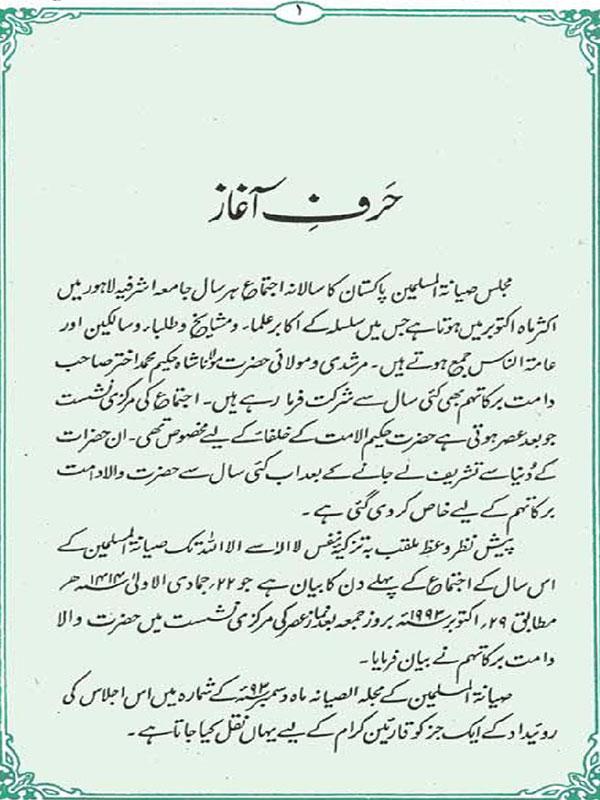 ۱
حَرفِ آغاز
مجلس صیانۃ المسلمین پاکستان کا سالانہ اجتماع ہر سال جامعہ اشرفیہ لاہور میں
اکثر ماہ اکتوبر میں ہوتا ہے جس میں سلسلہ کے اکابر علماء و مشایخ و طلباء و سالکین اور
عامۃ الناس جمع ہوتے ہیں۔ مرشدی و مولائی حضرت مولانا شاہ حکیم محمد اختر صاحب
دامت برکاتہم بھی کئی سال سے شرکت فرما رہے ہیں۔ اجتماع کی مرکزی نشست
جو بعد عصر ہوتی ہے حضرت حکیم الامت کے خلفاء کے لیے مخصوص تھی۔ ان حضرات
کے دُنیا سے تشریف لے جانے کے بعد اب کئی سال سے حضرت والا دامت
برکاتہم کے لیے خاص کر دی گئی ہے۔
پیش نظر وعظ ملقب بہ تزکیۂ نفس لا الٰہ سے الا اللہ تک صیانۃ المسلمین کے
اس سال کے اجتماع کے پہلے دن کا بیان ہے جو ۲۲؍ جمادی الاولیٰ ۱۴۱۴ھ
مطابق ۲۹؍ اکتوبر ۱۹۹۳ء بروز جمعہ بعد نماز عصر کی مرکزی نشست میں حضرت والا
دامت برکاتہم نے بیان فرمایا۔
صیانۃ المسلمین کے مجلہ الصیانہ ماہ دسمبر ۹۳ء کے شمارہ میں اس اجلاس کی
روئیداد کے ایک جز کو قارئین کرام کے لیے یہاں نقل کیا جاتا ہے۔